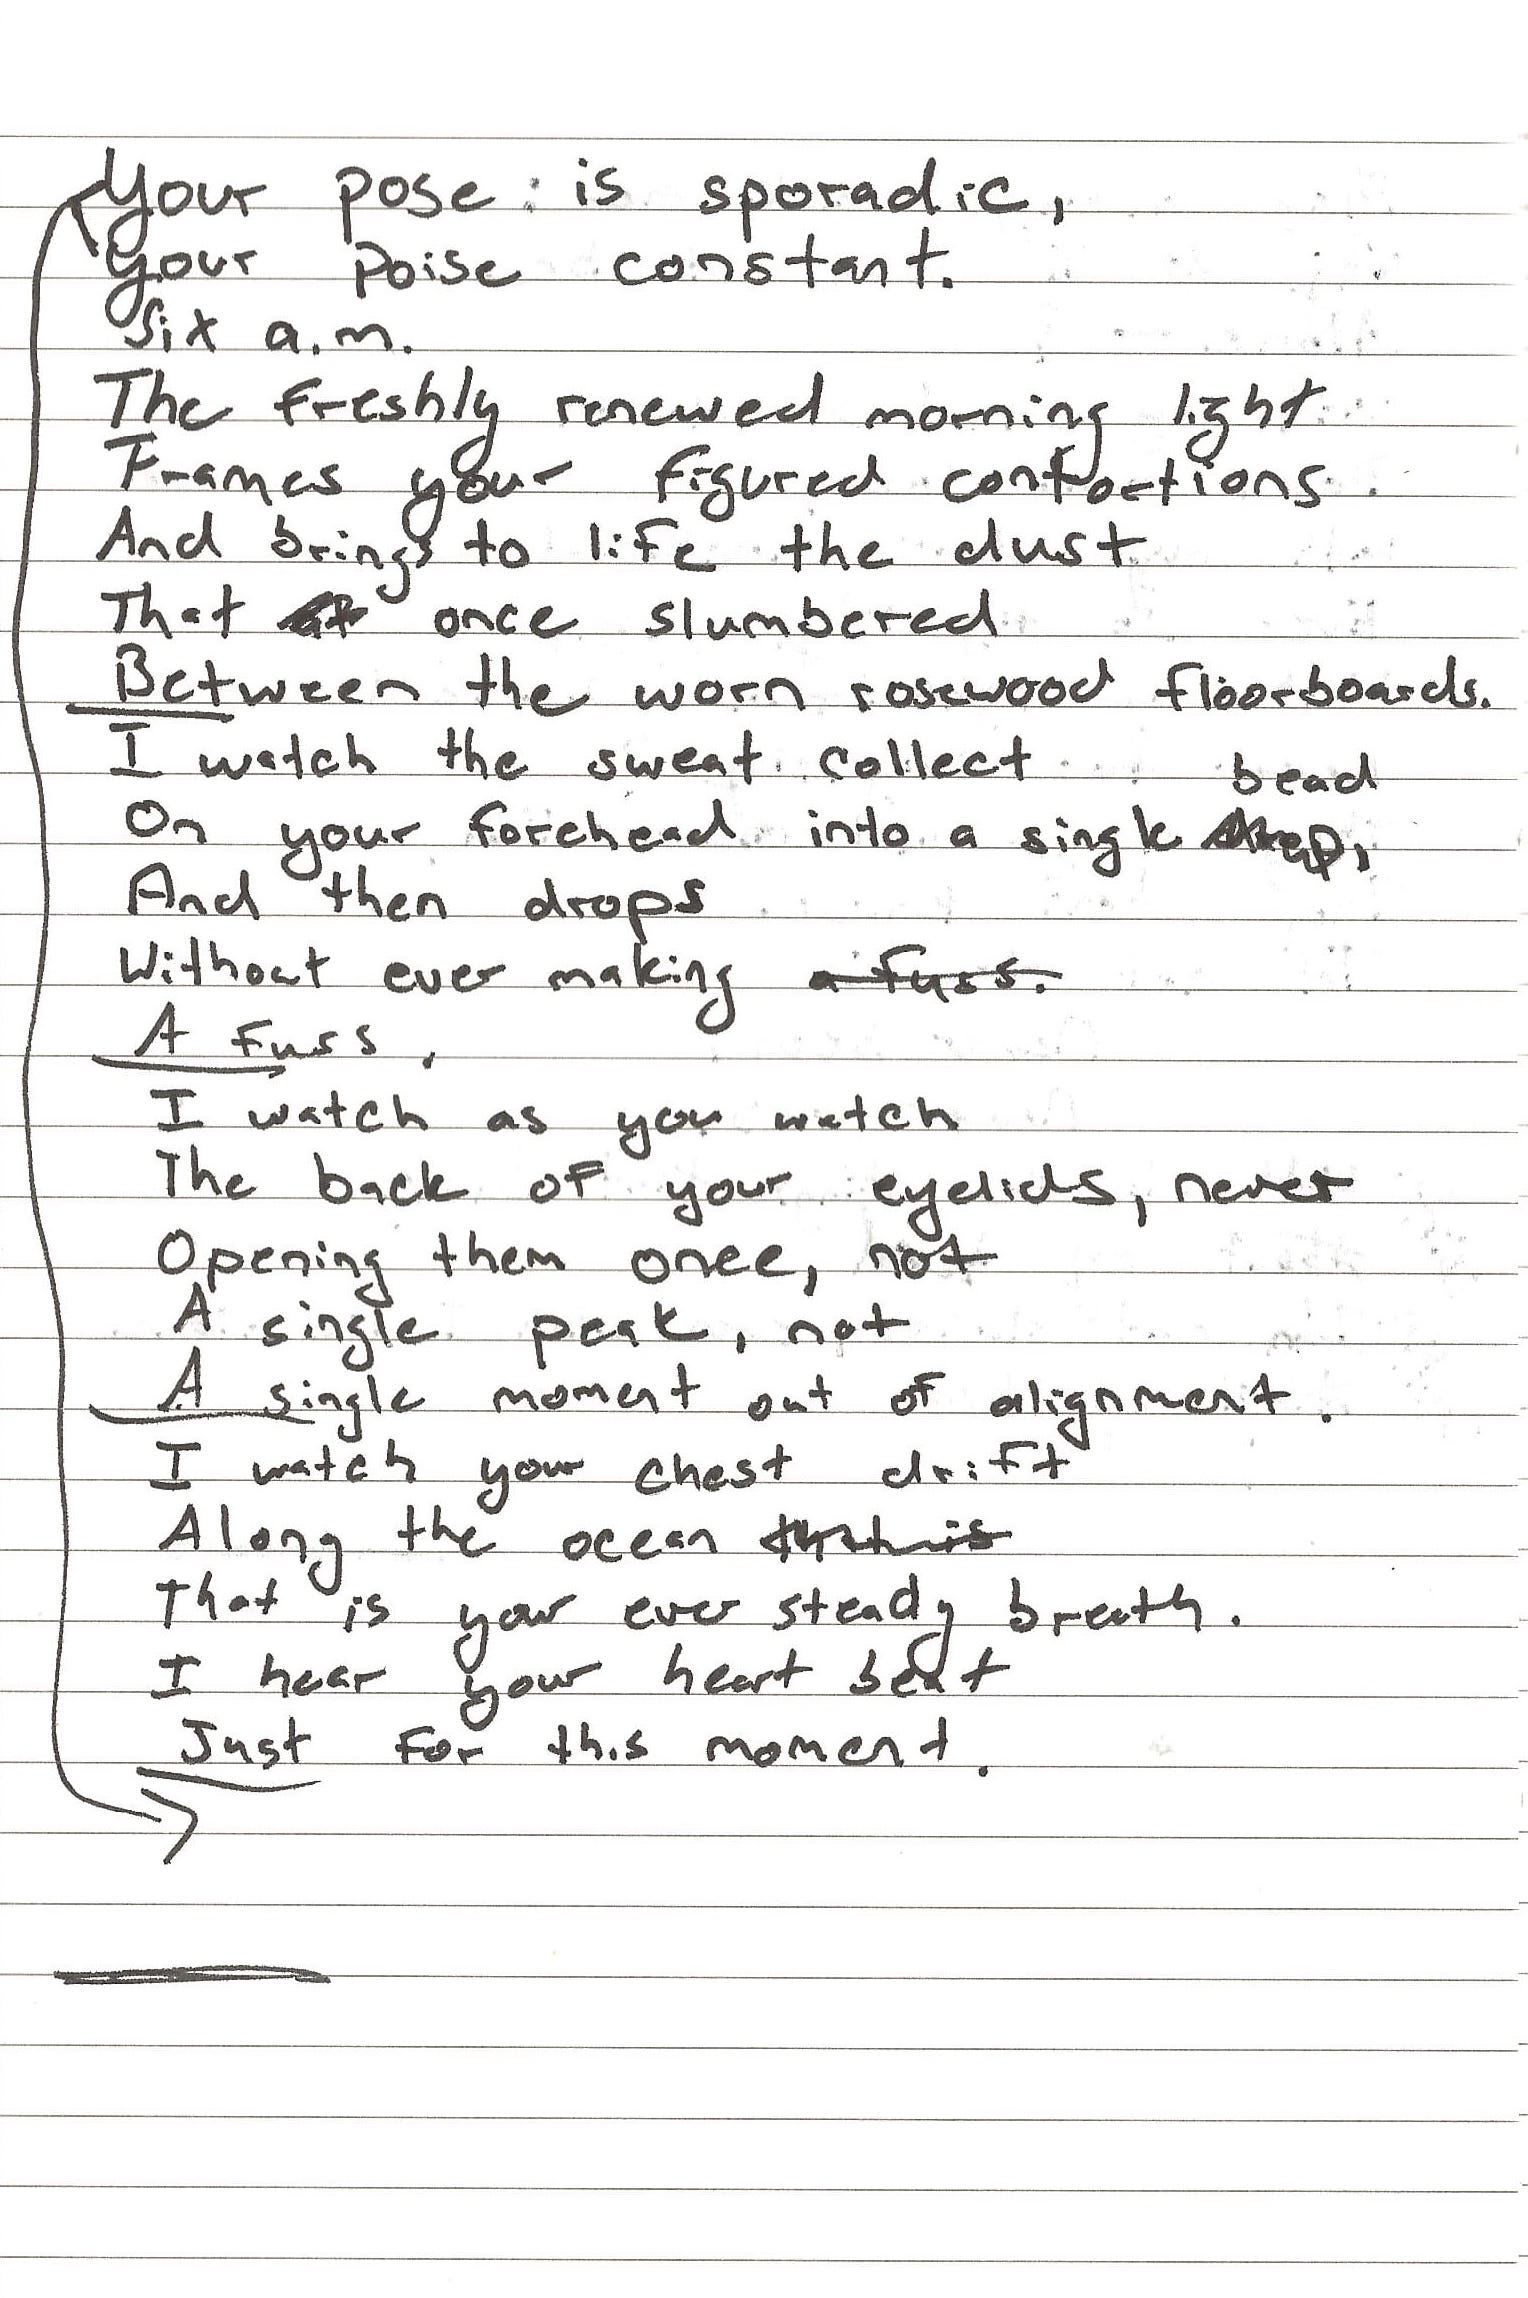 Your pose is sporadic,
your poise constant.
Six a.m.
The freshly renewed morning light
Frames your figured contortions
And brings to life the dust
That once slumbered
Between the worn rosewood floorboards.
I watch the sweat collect
bead
On your forehead into a single drop,
And then drops
Without ever making a fuss.
A fuss.
I watch as you watch
The back of your eyelids, never
Opening them once, not
A single peak, not
A single moment out of alignment.
I watch your chest drift
Along the ocean
That is your ever steady breath.
I hear your heart beat
Just for this moment.